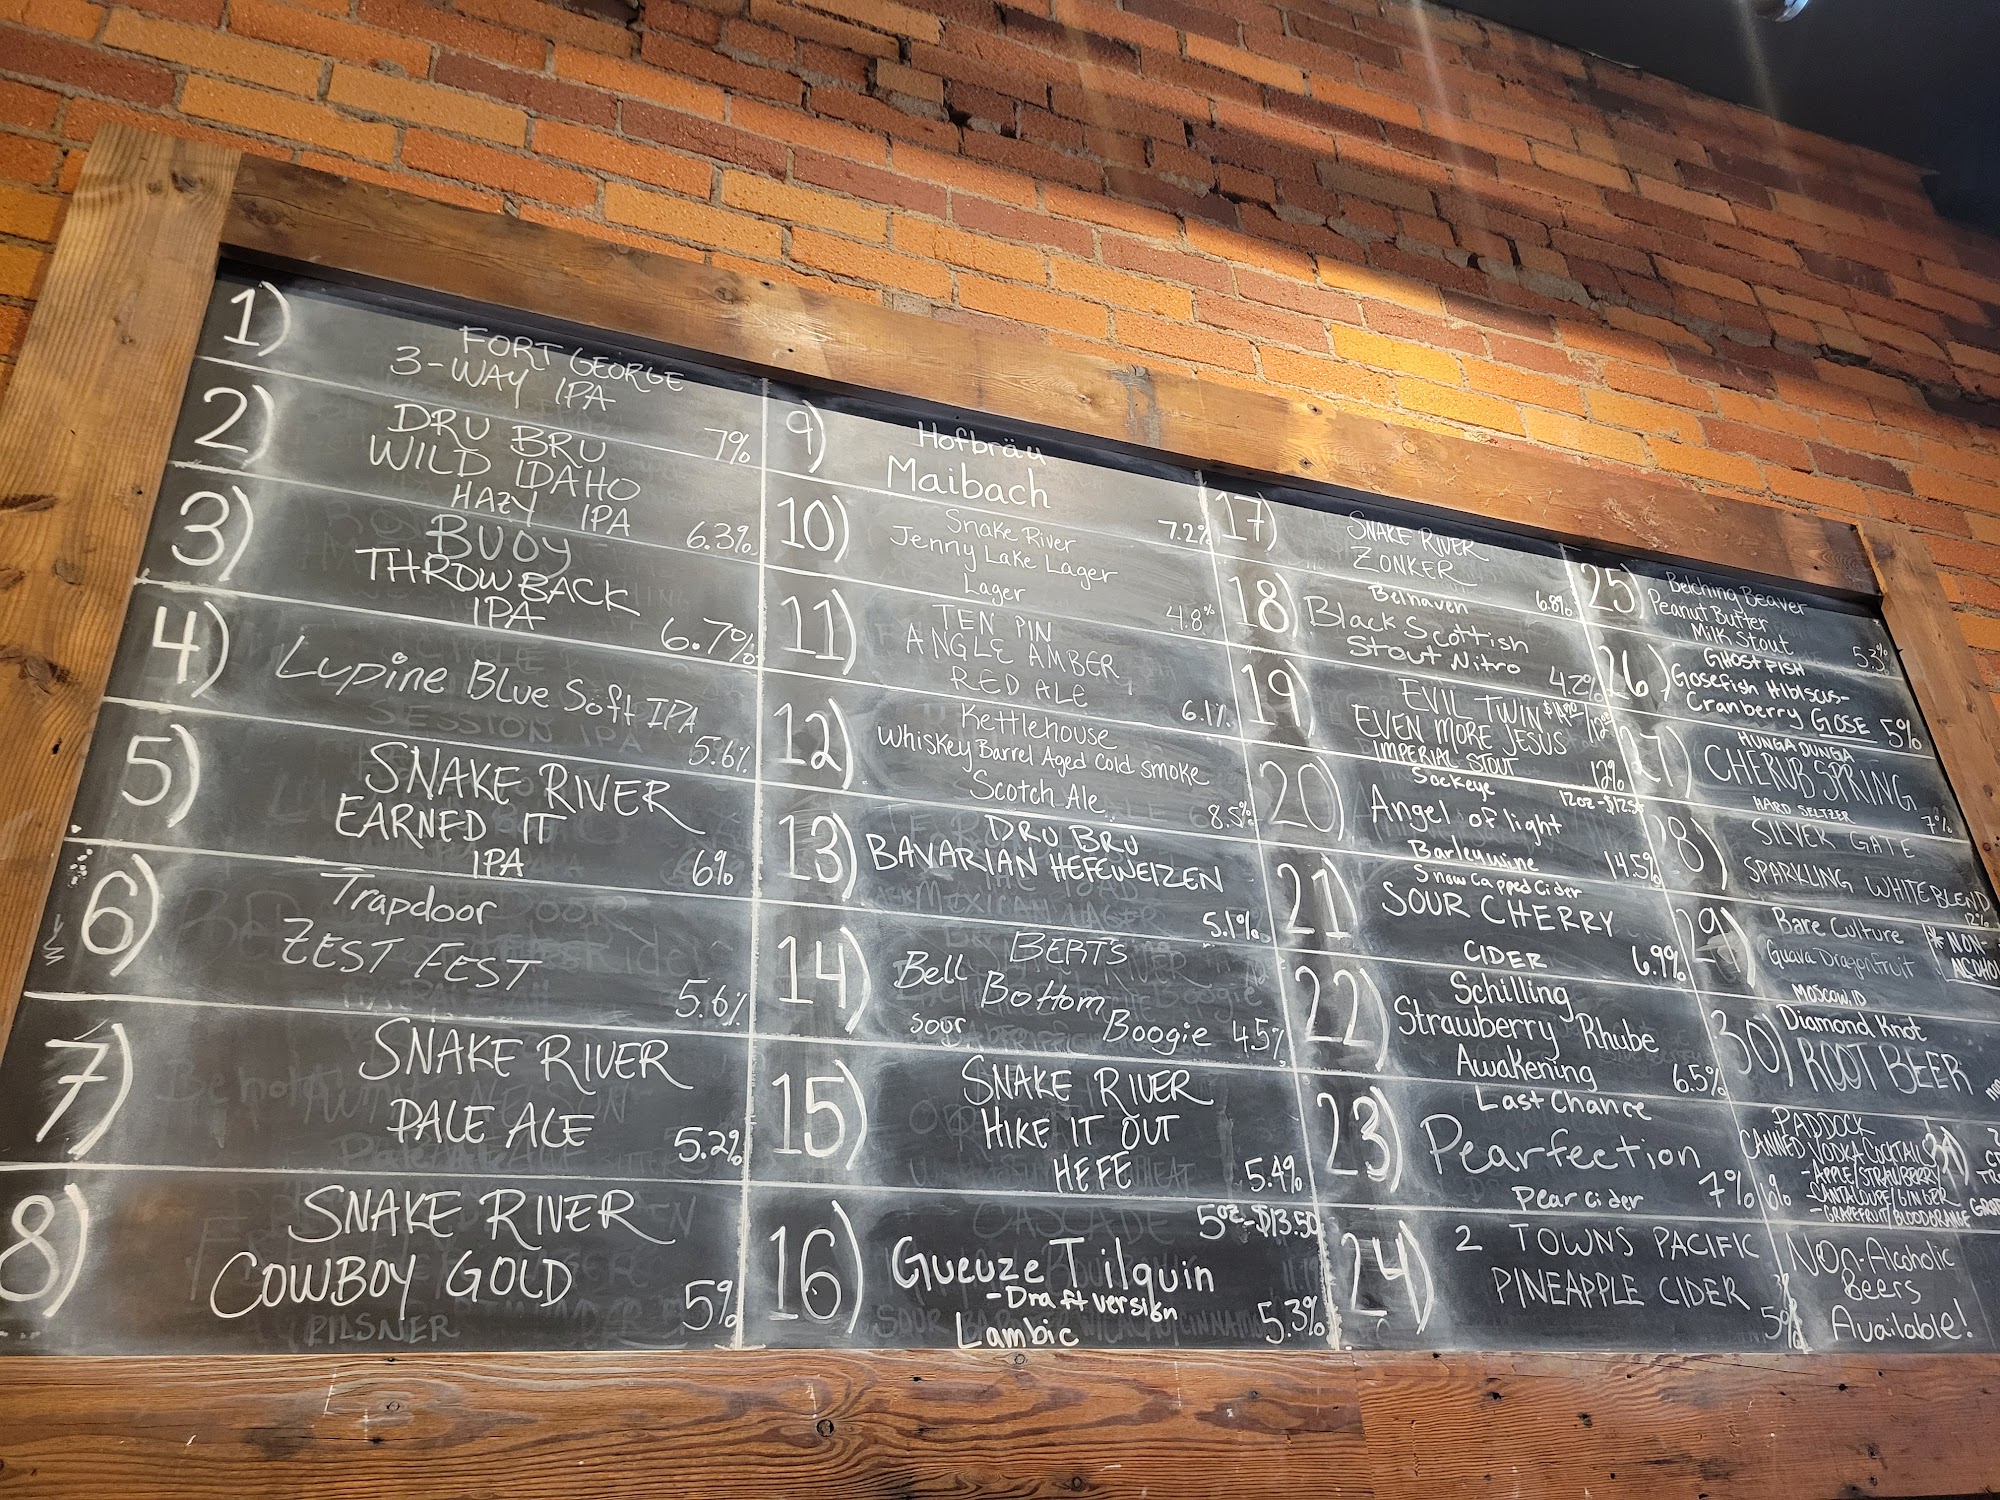 1)
FORT GEORGE
3-WAY IPA
7%
2)
DRU BRU
WILD IDAHO
HAZY IPA
6.3%
3)
BUOY
THROWBACK
IPA
6.7%
4)
Lupine Blue Soft IPA
5.6%
5)
SNAKE RIVER
EARNED IT
IPA
6%
6)
Trapdoor
ZEST FEST
5.6%
7)
SNAKE RIVER
PALE ALE
5.2%
8)
SNAKE RIVER
COWBOY GOLD
5%
PILSNER
9)
Hofbräu
Maibach
7.2%
10)
Snake River
Jenny Lake Lager
Lager
4.8%
11)
TEN PIN
ANGLE AMBER
RED ALE
6.1%
12)
Kettlehouse
Whiskey Barrel Aged Cold Smoke
Scotch Ale
8.5%
13)
DRU BRU
BAVARIAN HEFEWEIZEN
5.1%
14)
BERT'S
Bell Bottom Boogie
Sour
4.5%
15)
SNAKE RIVER
HIKE IT OUT
HEFE
5.4%
16)
5oz-$13.50
Gueuze Tilquin
-Draft version
Lambic
5.3%
17)
SNAKE RIVER
ZONKER
6.8%
18)
Belhaven
Black Scottish
Stout Nitro
4.2%
19)
EVIL TWIN
EVEN MORE JESUS
IMPERIAL STOUT
12%
20)
Sockeye
Angel of light
Barleywine
14.5%
21)
Snow Capped Cider
SOUR CHERRY
CIDER
6.9%
22)
Schilling
Strawberry Rhube
Awakening
6.5%
23)
Last Chance
Pearfection
Pear Cider
7%
24)
2 TOWNS PACIFIC
PINEAPPLE CIDER
5%
25)
Belching Beaver
Peanut Butter
Milk Stout
5.3%
26)
GHOSTFISH
Gosefish Hibiscus-
Cranberry GOSE
5%
27)
HUNGA DUNGA
CHERUB SPRING
HARD SELTZER
7%
28)
SILVER GATE
SPARKLING WHITE BLEND
12%
29)
Bare Culture
Guava Dragonfruit
MOSCOW, ID
* NON-
30)
Diamond Knot
ROOT BEER
PADDOCK
CANNED VODKA COCKTAIL
-APPLE/STRAWBERRY
-CANTALOUPE/GINGER
-GRAPEFRUIT/BLOOD ORANGE
6%
Non-Alcoholic
Beers
Available!